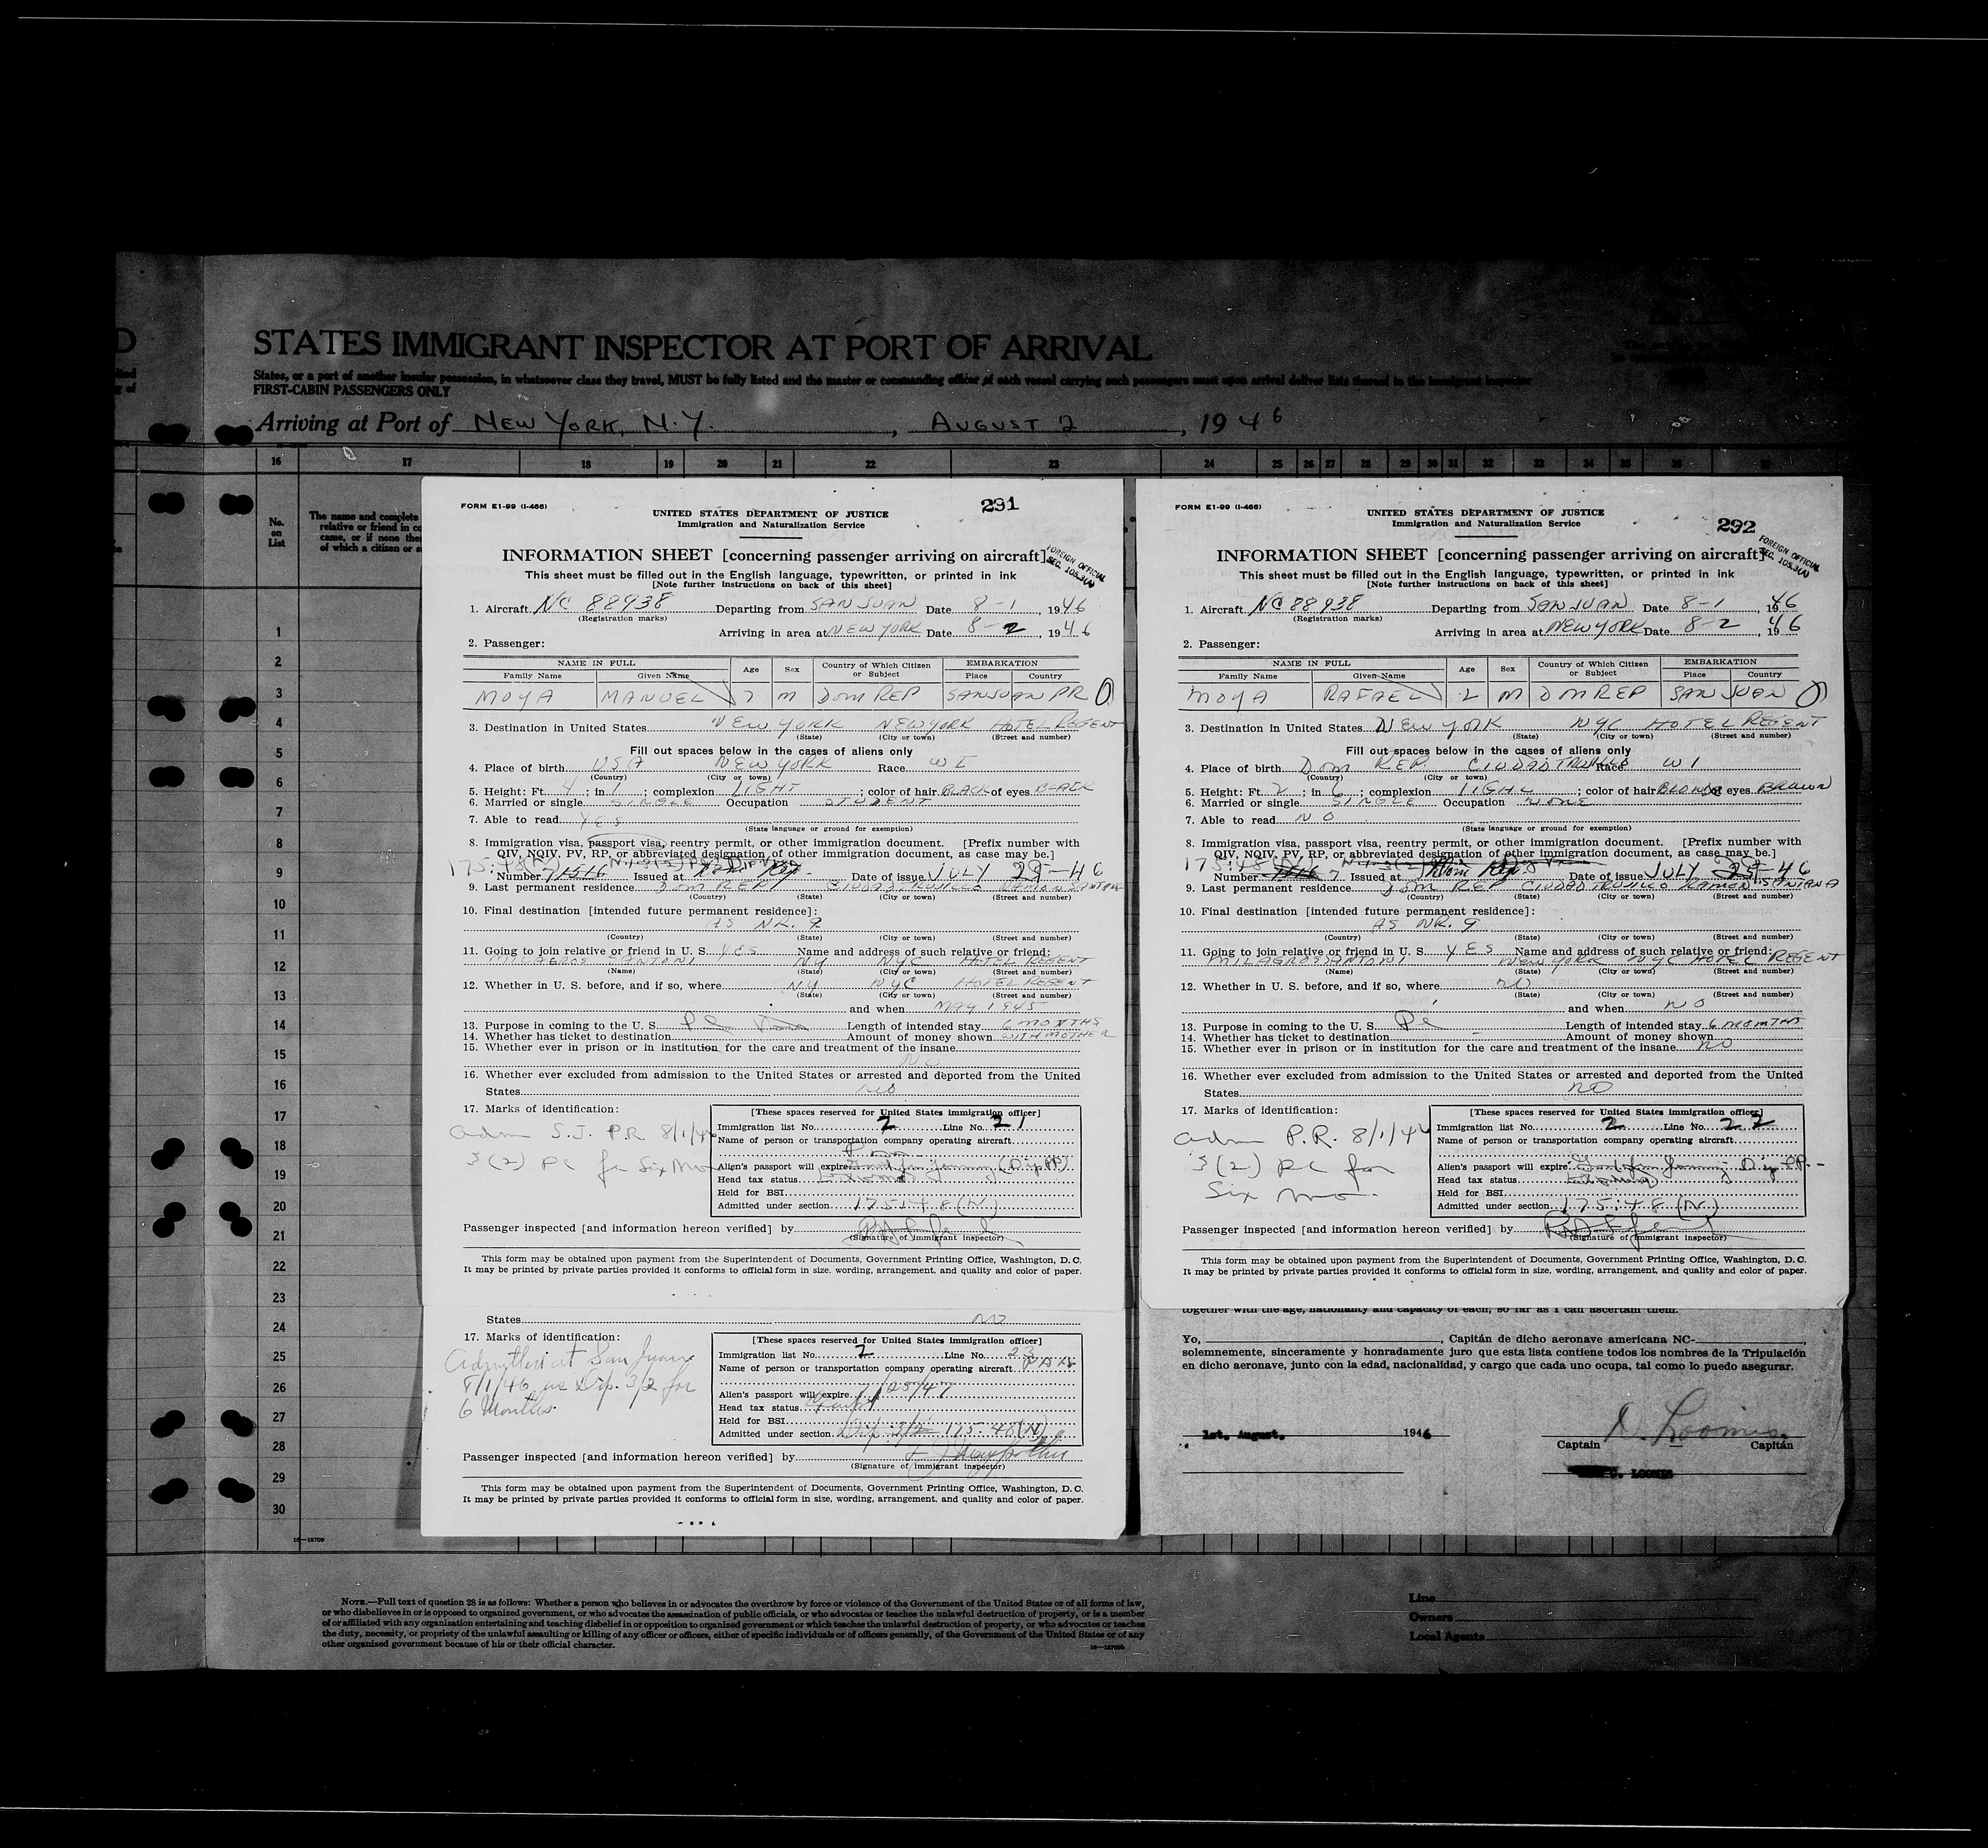 STATES IMMIGRANT INSPECTOR AT PORT OF ARRIVAL
States, or a port of another insular possession, in whatsoever class they travel, MUST be fully listed and the master or commanding officer of each vessel carrying such passengers must upon arrival deliver lists thereof to the immigrant inspector
FIRST-CABIN PASSENGERS ONLY
Arriving at Port of NEW YORK, N.Y. , AUGUST 2 , 1946
16 17 18 19 20 21 22 23 24 25 26 27 28 29 30 31 32 33 34 35 36 37
No. on List
The name and complete
relative or friend in co
came, or if none the
of which a citizen or s
1
2
3
4
5
6
7
8
9
10
11
12
13
14
15
16
17
18
19
20
21
22
23
24
25
26
27
28
29
30
FORM E1-99 (I-466)
291
UNITED STATES DEPARTMENT OF JUSTICE
Immigration and Naturalization Service
INFORMATION SHEET [concerning passenger arriving on aircraft]
FOREIGN OFFICIAL
SEC. 105.3(A)
This sheet must be filled out in the English language, typewritten, or printed in ink
[Note further instructions on back of this sheet]
1. Aircraft NC 88938 Departing from SAN JUAN Date 8-1, 1946
(Registration marks)
Arriving in area at NEW YORK Date 8-2, 1946
2. Passenger:
NAME IN FULL Age Sex Country of Which Citizen or Subject EMBARKATION
Family Name Given Name Place Country
MOYA MANUEL 7 M DOM REP SAN JUAN PR
3. Destination in United States NEW YORK NEW YORK HOTEL REGENT
(State) (City or town) (Street and number)
Fill out spaces below in the cases of aliens only
4. Place of birth USA NEW YORK Race WI
(Country) (City or town)
5. Height: Ft. 4; in 1; complexion LIGHT; color of hair BLACK of eyes BLACK
6. Married or single SINGLE Occupation STUDENT
7. Able to read YES
(State language or ground for exemption)
8. Immigration visa, passport visa, reentry permit, or other immigration document. [Prefix number with
QIV, NQIV, PV, RP, or abbreviated designation of other immigration document, as case may be.]
175:48(N)
Number Issued at Dom Rep. Date of issue JULY 29-46
9. Last permanent residence DOM REP CIUDAD TRUJILLO RAMON SANTANA
(Country) (State) (City or town) (Street and number)
10. Final destination [intended future permanent residence]:
AS NR. 9
(Country) (State) (City or town) (Street and number)
11. Going to join relative or friend in U. S. YES Name and address of such relative or friend:
MILAGROS SANTONI NY NYC HOTEL REGENT
(Name) (State) (City or town) (Street and number)
12. Whether in U. S. before, and if so, where NY NYC HOTEL REGENT
(State) (City or town) (Street and number)
and when MAY 1945
13. Purpose in coming to the U. S. Length of intended stay 6 MONTHS
14. Whether has ticket to destination Amount of money shown WITH MOTHER
15. Whether ever in prison or in institution for the care and treatment of the insane
NO
16. Whether ever excluded from admission to the United States or arrested and deported from the United
States NO
17. Marks of identification:
Adm S.J. P.R. 8/1/46
3(2) PC for Six Mo
[These spaces reserved for United States immigration officer]
Immigration list No. 2 Line No. 21
Name of person or transportation company operating aircraft
Alien's passport will expire
Head tax status
Held for BSI
Admitted under section 175:48(N)
Passenger inspected [and information hereon verified] by
(Signature of immigrant inspector)
This form may be obtained upon payment from the Superintendent of Documents, Government Printing Office, Washington, D. C.
It may be printed by private parties provided it conforms to official form in size, wording, arrangement, and quality and color of paper.
States NO
17. Marks of identification:
Admitted at San Juan
8/1/46 as Dip. 3/2 for
6 Months.
[These spaces reserved for United States immigration officer]
Immigration list No. 2 Line No. 23
Name of person or transportation company operating aircraft
Alien's passport will expire 7/25/47
Head tax status
Held for BSI
Admitted under section Dip 3/2 175.48(N)
Passenger inspected [and information hereon verified] by
(Signature of immigrant inspector)
This form may be obtained upon payment from the Superintendent of Documents, Government Printing Office, Washington, D. C.
It may be printed by private parties provided it conforms to official form in size, wording, arrangement, and quality and color of paper.
FORM E1-99 (I-466)
292
UNITED STATES DEPARTMENT OF JUSTICE
Immigration and Naturalization Service
INFORMATION SHEET [concerning passenger arriving on aircraft]
FOREIGN OFFICIAL
SEC. 105.3(A)
This sheet must be filled out in the English language, typewritten, or printed in ink
[Note further instructions on back of this sheet]
1. Aircraft NC 88938 Departing from SAN JUAN Date 8-1, 1946
(Registration marks)
Arriving in area at NEW YORK Date 8-2, 1946
2. Passenger:
NAME IN FULL Age Sex Country of Which Citizen or Subject EMBARKATION
Family Name Given Name Place Country
MOYA RAFAEL 2 M DM REP SAN JUAN
3. Destination in United States NEW YORK NYC HOTEL REGENT
(State) (City or town) (Street and number)
Fill out spaces below in the cases of aliens only
4. Place of birth DOM REP. CIUDAD TRUJILLO Race WI
(Country) (City or town)
5. Height: Ft. 2; in 6; complexion LIGHT; color of hair BLOND of eyes BROWN
6. Married or single SINGLE Occupation NONE
7. Able to read NO
(State language or ground for exemption)
8. Immigration visa, passport visa, reentry permit, or other immigration document. [Prefix number with
QIV, NQIV, PV, RP, or abbreviated designation of other immigration document, as case may be.]
175:48(N)
Number Issued at Dom Rep. Date of issue JULY 29-46
9. Last permanent residence DOM REP CIUDAD TRUJILLO RAMON SANTANA
(Country) (State) (City or town) (Street and number)
10. Final destination [intended future permanent residence]:
AS NR. 9
(Country) (State) (City or town) (Street and number)
11. Going to join relative or friend in U. S. YES Name and address of such relative or friend:
MILAGROS SANTONI NEW YORK NYC HOTEL REGENT
(Name) (State) (City or town) (Street and number)
12. Whether in U. S. before, and if so, where NO
(State) (City or town) (Street and number)
and when NO
13. Purpose in coming to the U. S. Length of intended stay 6 MONTHS
14. Whether has ticket to destination Amount of money shown
15. Whether ever in prison or in institution for the care and treatment of the insane NO
16. Whether ever excluded from admission to the United States or arrested and deported from the United
States NO
17. Marks of identification:
Adm P.R. 8/1/46
3(2) PC for
Six Mo.
[These spaces reserved for United States immigration officer]
Immigration list No. 2 Line No. 22
Name of person or transportation company operating aircraft
Alien's passport will expire
Head tax status
Held for BSI
Admitted under section 175:48(N)
Passenger inspected [and information hereon verified] by
(Signature of immigrant inspector)
This form may be obtained upon payment from the Superintendent of Documents, Government Printing Office, Washington, D. C.
It may be printed by private parties provided it conforms to official form in size, wording, arrangement, and quality and color of paper.
together with the age, nationality and capacity of each, so far as I can ascertain them.
Yo, , Capitán de dicho aeronave americana NC-
solemnemente, sinceramente y honradamente juro que esta lista contiene todos los nombres de la Tripulación
en dicho aeronave, junto con la edad, nacionalidad, y cargo que cada uno ocupa, tal como lo puedo asegurar.
1st. August. 1946
Loomis
Captain Capitán
LOOMIS
16—18709
NOTE.—Full text of question 28 is as follows: Whether a person who believes in or advocates the overthrow by force or violence of the Government of the United States or of all forms of law,
or who disbelieves in or is opposed to organized government, or who advocates the assassination of public officials, or who advocates or teaches the unlawful destruction of property, or is a member
of or affiliated with any organization entertaining and teaching disbelief in or opposition to organized government or which teaches the unlawful destruction of property, or who advocates or teaches
the duty, necessity, or propriety of the unlawful assaulting or killing of any officer or officers, either of specific individuals or of officers generally, of the Government of the United States or of any
other organized government because of his or their official character.
Line
Owners
Local Agents